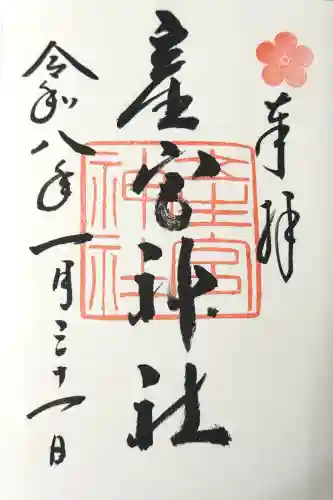 奉拝
産宮神社
令和八年一月三十一日
産宮
神社